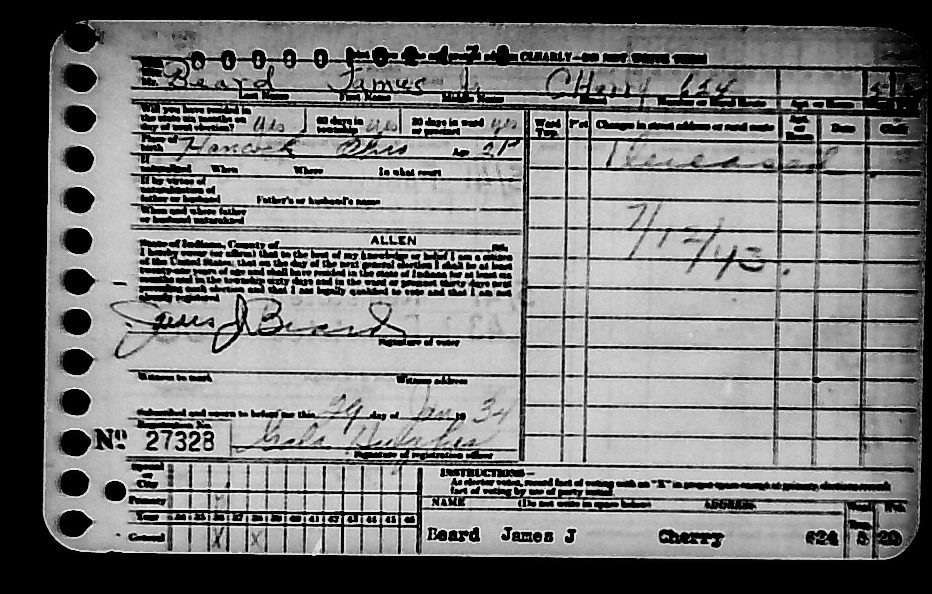 CLEARLY—DO NOT WRITE
Mr. Beard James J. Cherry 624
Last Name First Name Middle Name Street Number or Rural Route Apt. or Room
Will you have resided in the state six months on day of next election? yes 60 days in township yes 30 days in ward or precinct yes
Ward Twp. Pct. Changes in street address or rural route Apt. or Room Date Clerk
Place of birth Hancock Ohio Age 21+
Deceased
If naturalized When Where In what court
If by virtue of naturalization of father or husband Father's or husband's name
When and where father or husband naturalized
7/12/43.
State of Indiana, County of ALLEN ss.
I hereby swear (or affirm) that to the best of my knowledge or belief I am a citizen
of the United States; that on the day of the next general election I shall be at least
twenty-one years of age and shall have resided in the state of Indiana for at least six
months and in the township sixty days and in the ward or precinct thirty days next
preceding such election and that I am legally qualified to vote and that I am not
already registered
James J Beard
Signature of voter
Witness to mark Witness address
Subscribed and sworn to before me this 29 day of Jan 19 34
Registration No.
No 27328
Signature of registration officer
INSTRUCTIONS—
As elector votes, record fact of voting with an "X" in proper space except at primary elections record
fact of voting by use of party initial.
Special or City
Primary
NAME (Do not write in space below) ADDRESS Ward Twp. Pct.
Year 34 35 36 37 38 39 40 41 42 43 44 45 46
General X X
Beard James J Cherry 624 5 20